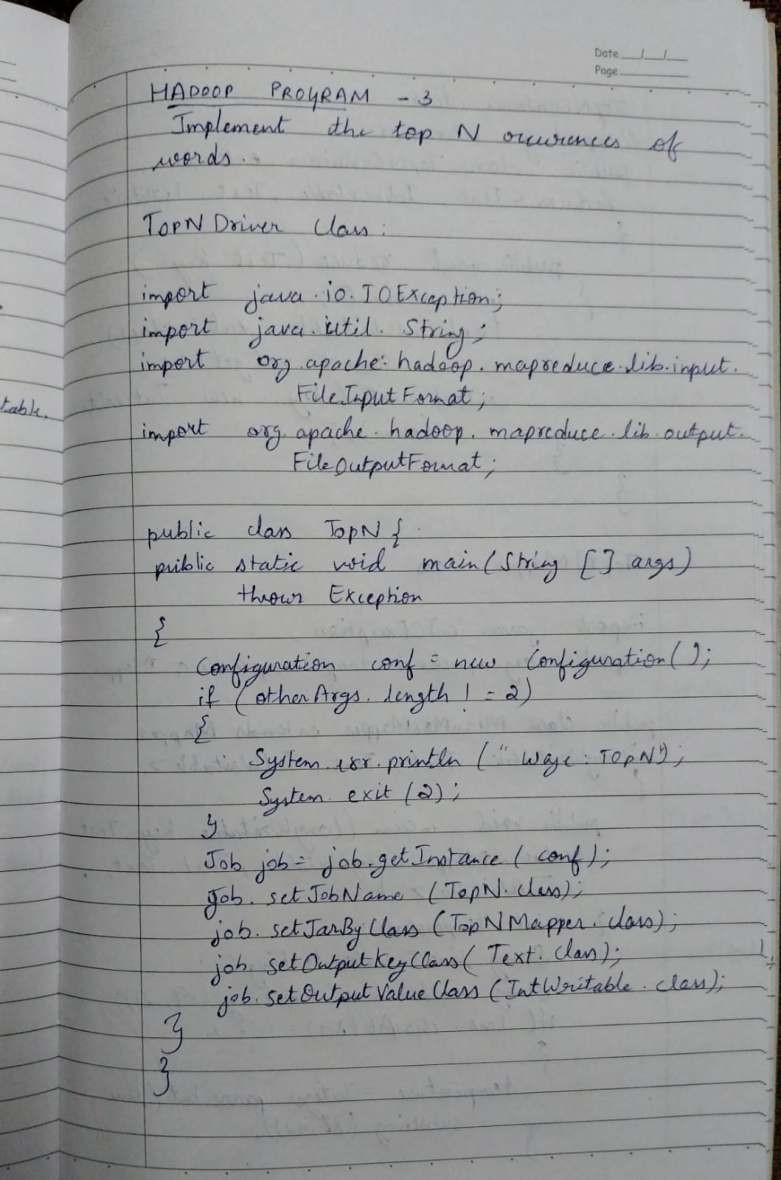 Date __/__/__
Page ______
HADOOP PROGRAM - 3
Implement the top N occurences of
words.
TOPN Driver Class:
import java.io.IOException;
import java.util.String;
import org.apache.hadoop.mapreduce.lib.input.
FileInputFormat;
import org.apache.hadoop.mapreduce.lib.output.
FileOutputFormat;
table.
public class TopN {
public static void main(String [] args)
throws Exception
{
Configuration conf = new Configuration();
if (otherArgs.length != 2)
{
System.err.println (" : TOPN");
System exit (2);
}
Job job = job.getInstance ( conf );
job. setJobName (TopN.class);
job. setJarByClass (TopNMapper.class);
job setOutputKeyClass( Text.class);
job. setOutput ValueClass (IntWritable.class);
}
}